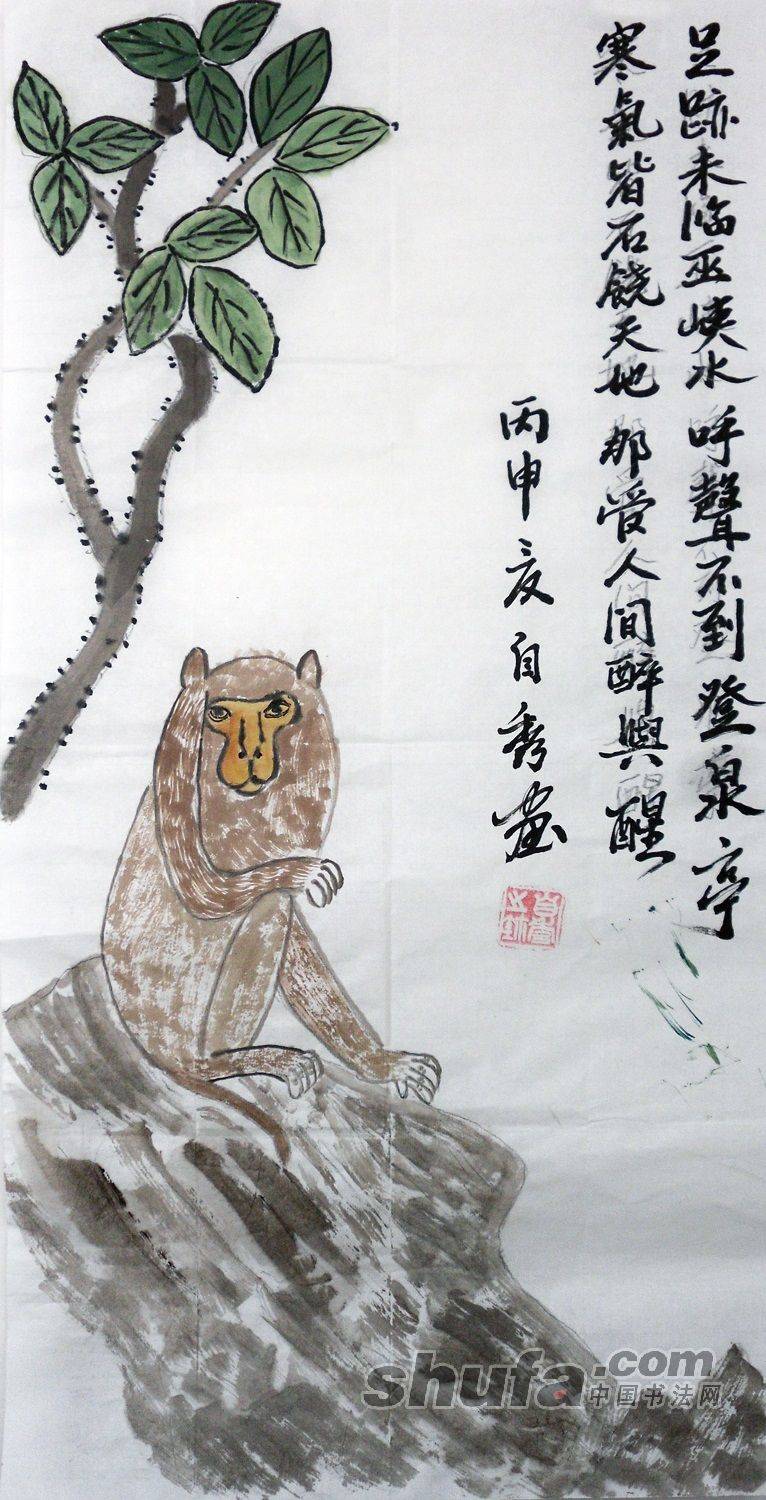 足跡未临巫峡水呼聲不到登泉亭
寒氣皆石饒天地那受人间醉與醒
丙申亥自秀画
shufa.com
中国书法网